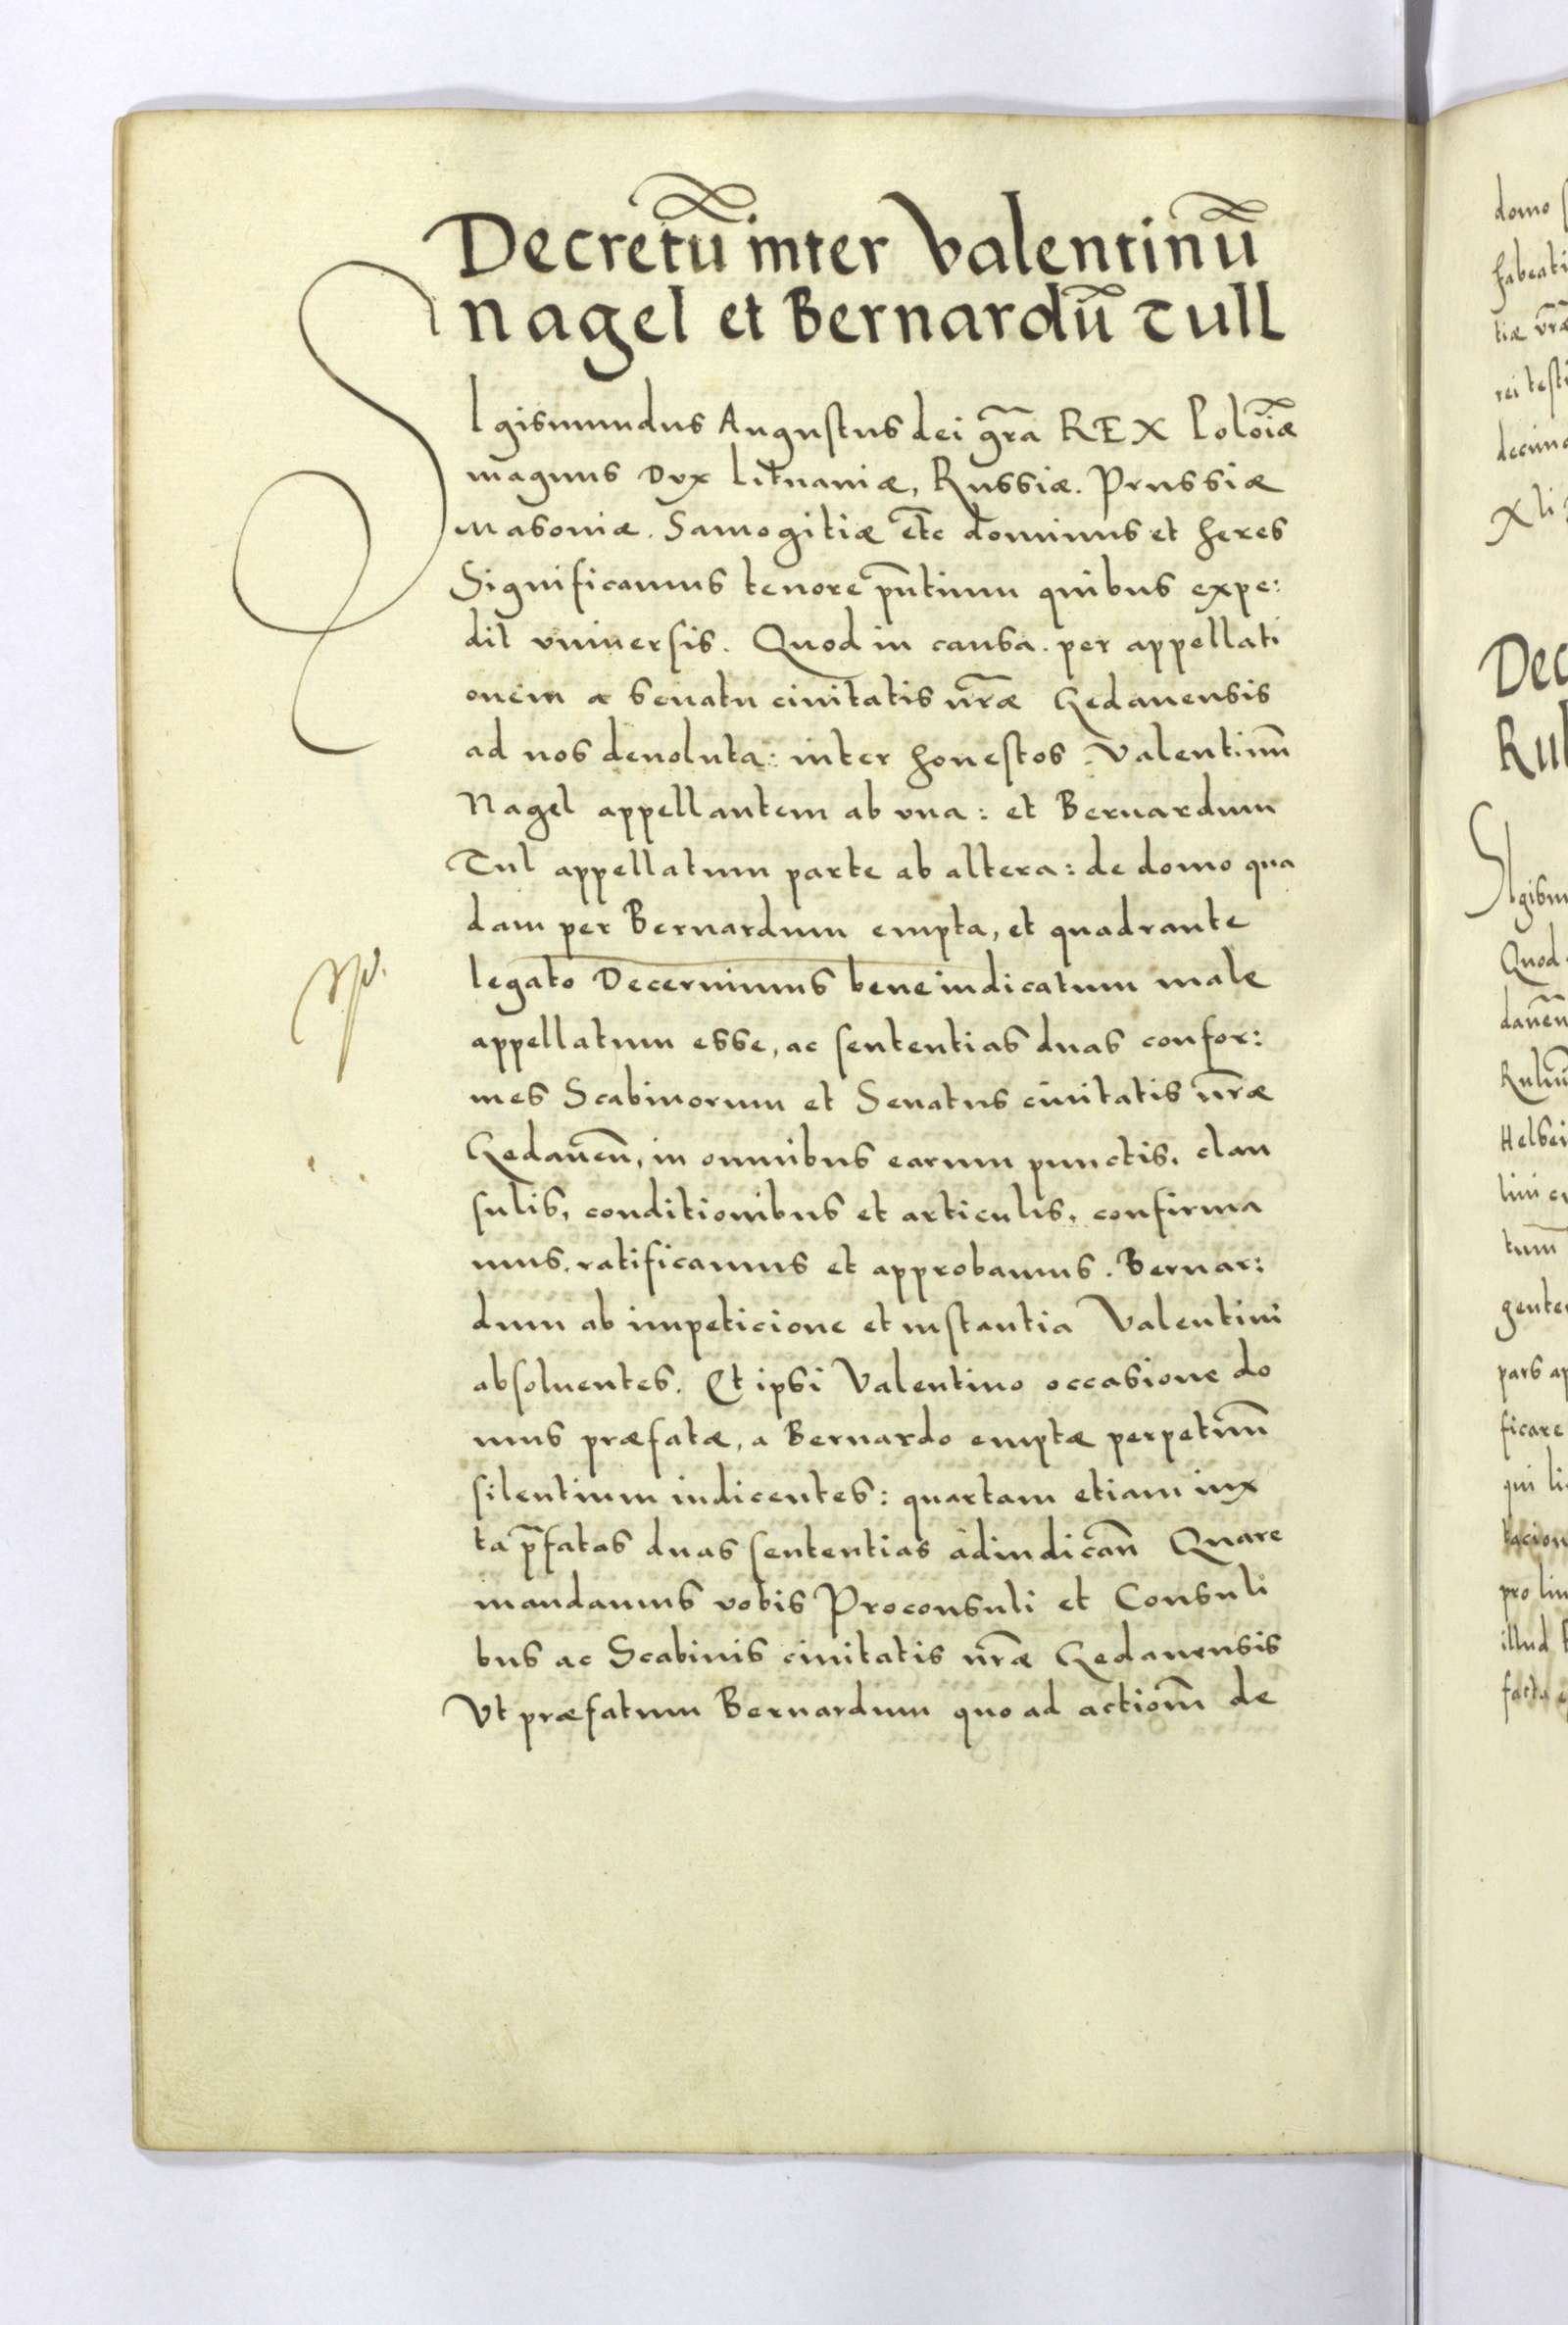 Decretū inter Valentinū
nagel et Bernardū Tull
SIgismundus Augustus dei gr̄a REX Poloīæ
magnus Dux Lituaniæ, Russiæ. Prussiæ
Masoviæ. Samogitiæ et̄c dominus et heres
Significamus tenore pn̄tium quibus expe:
dit vniuersis. Quod in causa. per appellati
onem a senatu ciuitatis nr̄æ Gedanensis
ad nos deuoluta: inter honestos Valentinū
Nagel appellantem ab vna: et Bernardum
Tul appellatum parte ab altera: de domo qua
dam per Bernardum empta, et quadrante
legato Decernimus bene iudicatum male
appellatum esse, ac sententias duas confor:
mes Scabinorum et Senatus ciuitatis nr̄æ
Gedaneñ, in omnibus earum punctis, clau
sulis, conditionibus et articulis, confirma
mus, ratificamus et approbamus. Bernar:
dum ab impeticione et instantia Valentini
absoluentes. Et ipsi Valentino occasione do
mus præfatæ, a Bernardo emptæ perpetuū
silentium indicentes: quartam etiam iux
ta p̄fatas duas sententias adiudicañ Quare
mandamus vobis Proconsuli et Consuli
bus ac Scabinis ciuitatis nr̄æ Gedanensis
Vt præfatum Bernardum quo ad actiom̄ de
domo
habeati
tiæ vr̄æ
rei testi
decimo
Xli
Dec
Rul
SIgism
Quod
daneñ
Rulin
Helsei
lini
tum
gente
pars ap
ficare
qui li
tacion
pro lin
illud
facta